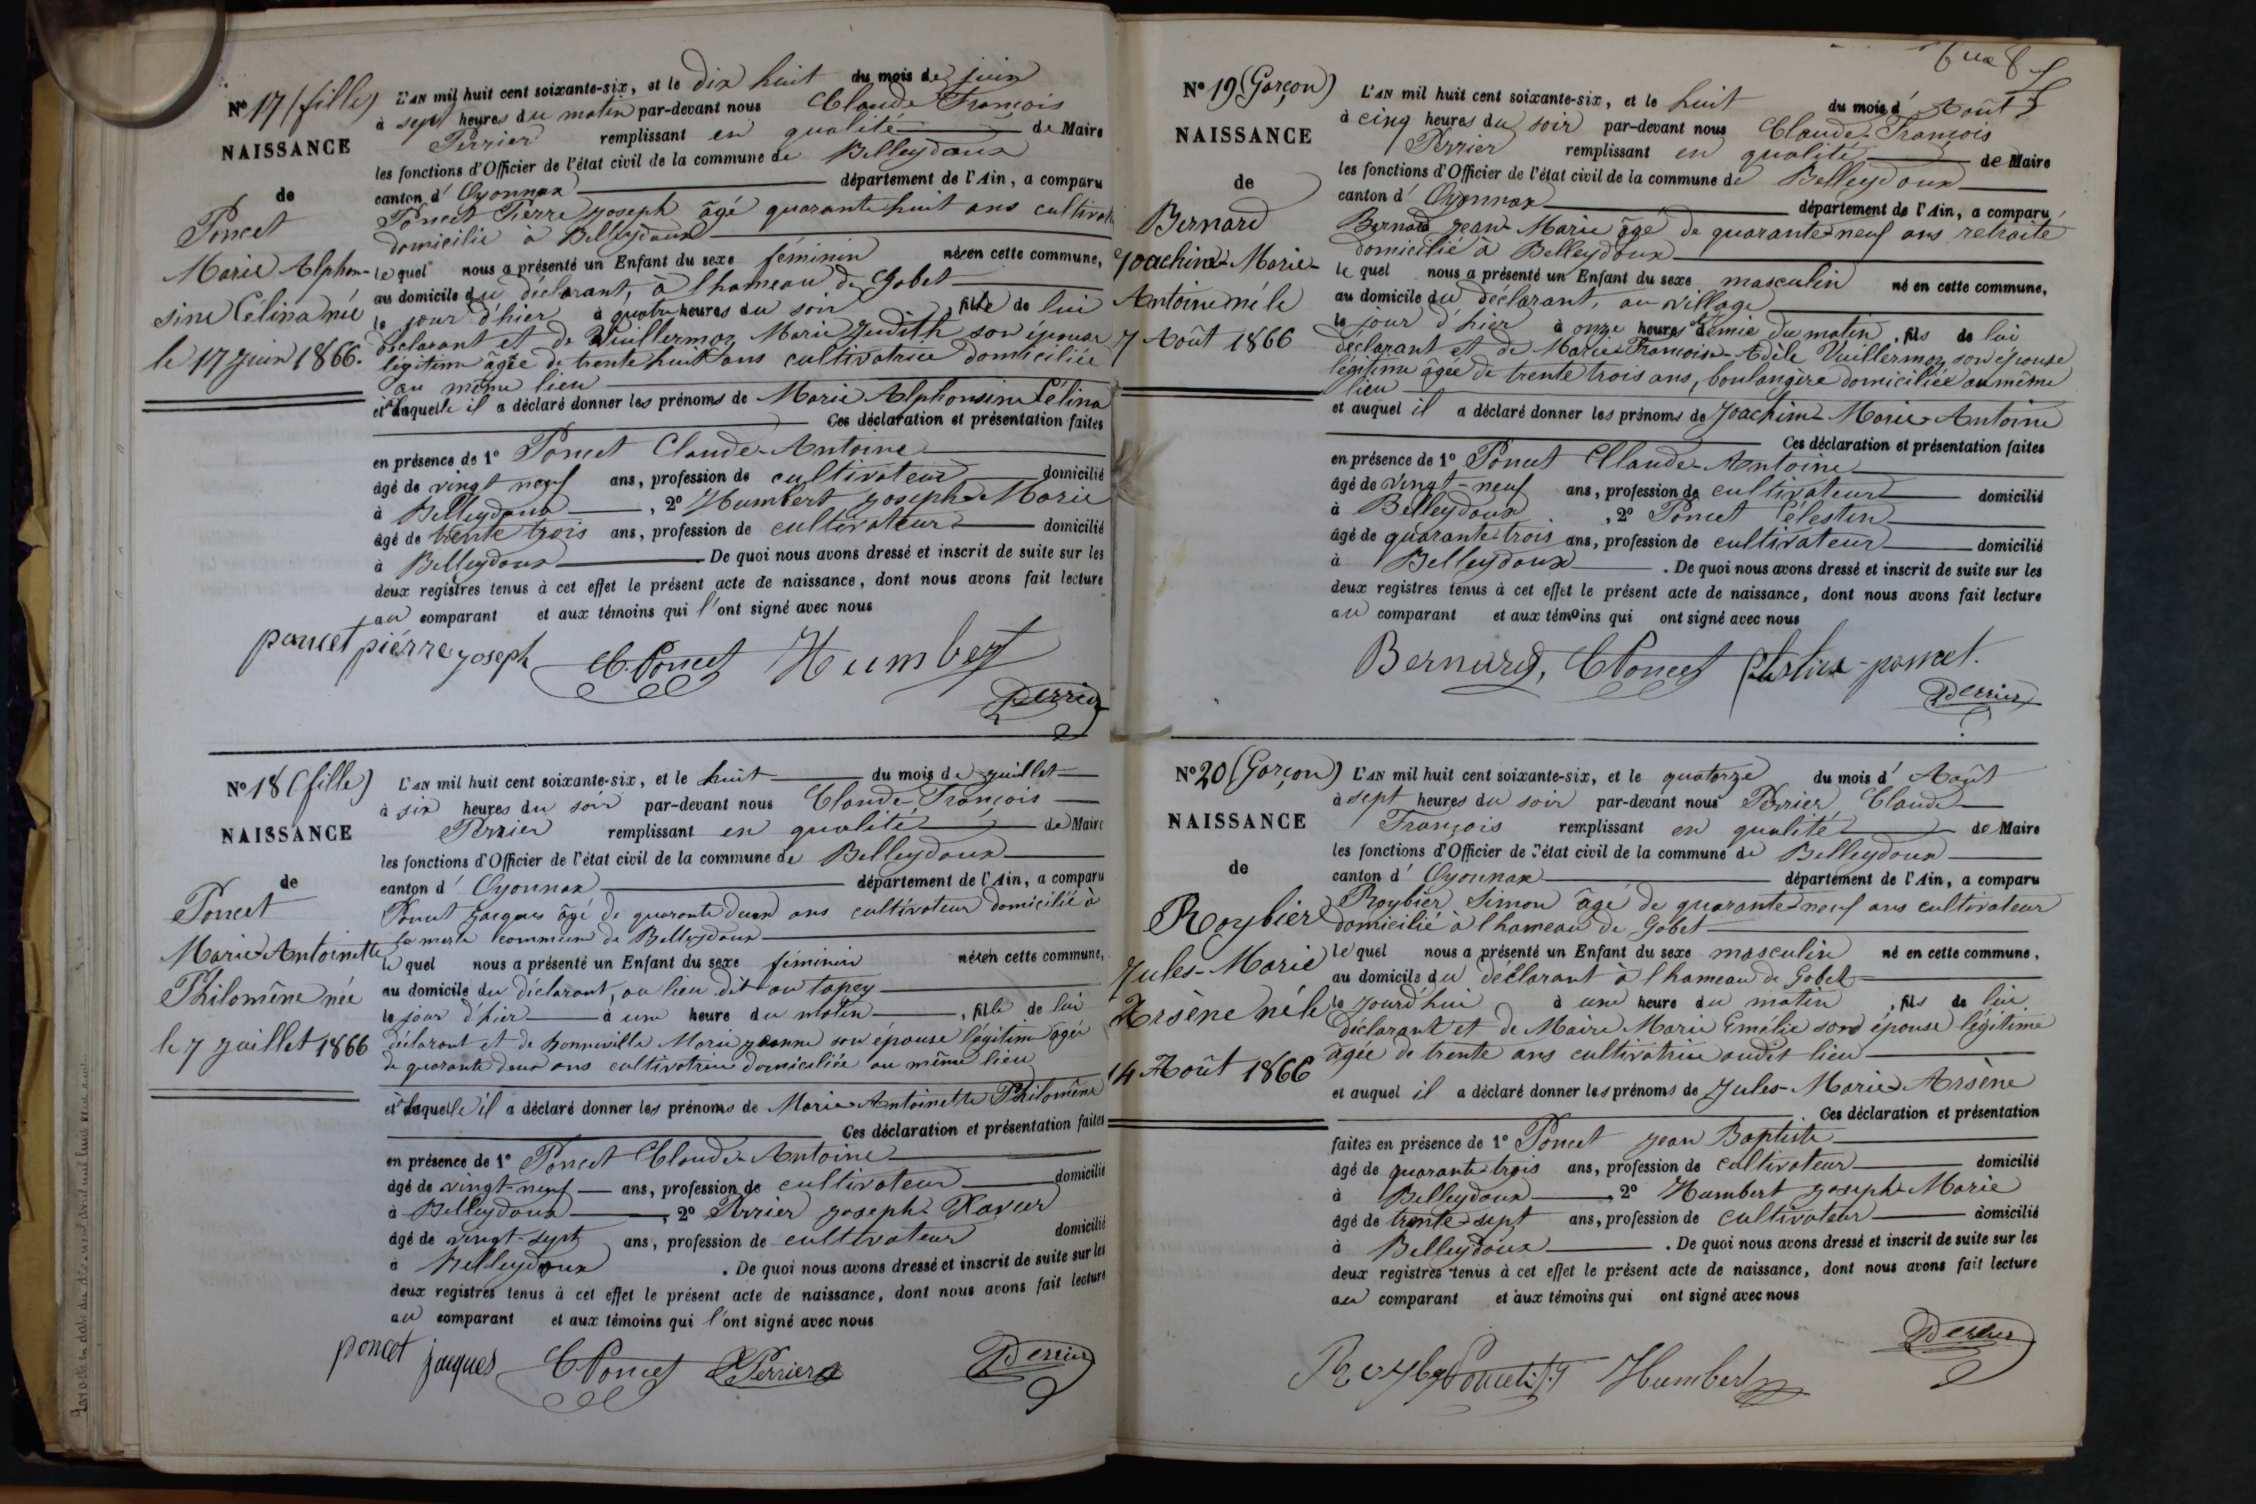 N° 17 (fille)
NAISSANCE
de
Poncet
Marie Alphon-
sine Célina née
le 17 juin 1866.
L'AN mil huit cent soixante-six, et le dix huit du mois de juin
à sept heures du matin par-devant nous Claude François
Perrier remplissant en qualité de Maire
les fonctions d'Officier de l'état civil de la commune de Belleydoux
canton d' Oyonnax département de l'Ain, a comparu
Poncet Pierre Joseph âgé quarante huit ans cultivat
domicilié à Belleydoux
le quel nous a présenté un Enfant du sexe féminin né en cette commune,
au domicile du déclarant, à l'hameau de Gobet
le jour d'hier à quatre heures du soir , fille de lui
déclarant et de Vuillermoz Marie Judith son épouse
légitime âgée de trente huit ans cultivatrice domiciliée
au même lieu
et à laquelle il a déclaré donner les prénoms de Marie Alphonsine Célina
Ces déclaration et présentation faites
en présence de 1° Poncet Claude-Antoine
âgé de vingt neuf ans, profession de cultivateur domicilié
à Belleydoux , 2° Humbert Joseph-Marie
âgé de trente trois ans, profession de cultivateur domicilié
à Belleydoux De quoi nous avons dressé et inscrit de suite sur les
deux registres tenus à cet effet le présent acte de naissance, dont nous avons fait lecture
au comparant et aux témoins qui l'ont signé avec nous
poncet piérre joseph C Poncet Humbert
Perrier
N° 18 (fille)
NAISSANCE
de
Poncet
Marie-Antoinette
Philomène née
le 7 juillet 1866
L'AN mil huit cent soixante-six, et le huit du mois de juillet
à six heures du soir par-devant nous Claude-François
Perrier remplissant en qualité de Maire
les fonctions d'Officier de l'état civil de la commune de Belleydoux
canton d' Oyonnax département de l'Ain, a comparu
Poncet Jacques âgé de quarante deux ans cultivateur domicilié à
commune de Belleydoux
le quel nous a présenté un Enfant du sexe féminin né en cette commune,
au domicile du déclarant, au lieu dit au tapey
le jour d'hier à une heure du matin , fille de lui
déclarant et de Bonneville Marie Jeanne son épouse légitime âgée
de quarante deux ans cultivatrice domiciliée au même lieu
et à laquelle il a déclaré donner les prénoms de Marie-Antoinette Philomène
Ces déclaration et présentation faites
en présence de 1° Poncet Claude-Antoine
âgé de vingt-neuf ans, profession de cultivateur domicilié
à Belleydoux , 2° Perrier Joseph Xavier
âgé de vingt-sept ans, profession de cultivateur domicilié
à Belleydoux . De quoi nous avons dressé et inscrit de suite sur les
deux registres tenus à cet effet le présent acte de naissance, dont nous avons fait lecture
au comparant et aux témoins qui l'ont signé avec nous
poncet jacques C Poncet X Perrier Perrier
N° 19 (Garçon)
NAISSANCE
de
Bernard
Joachim-Marie-
Antoine né le
7 Août 1866
L'AN mil huit cent soixante-six, et le huit du mois d' Août
à cinq heures du soir par-devant nous Claude-François
Perrier remplissant en qualité de Maire
les fonctions d'Officier de l'état civil de la commune de Belleydoux
canton d' Oyonnax département de l'Ain, a comparu
Bernard Jean-Marie âgé de quarante-neuf ans retraité
domicilié à Belleydoux
le quel nous a présenté un Enfant du sexe masculin né en cette commune,
au domicile du déclarant, au village
le jour d'hier à onze heures et demie du matin , fils de lui
déclarant et de Marie-Françoise-Adèle Vuillermoz son épouse
légitime âgée de trente trois ans, boulangère domiciliée au même
lieu
et auquel il a déclaré donner les prénoms de Joachim-Marie-Antoine
Ces déclaration et présentation faites
en présence de 1° Poncet Claude-Antoine
âgé de vingt-neuf ans, profession de cultivateur domicilié
à Belleydoux , 2° Poncet Célestin
âgé de quarante-trois ans, profession de cultivateur domicilié
à Belleydoux . De quoi nous avons dressé et inscrit de suite sur les
deux registres tenus à cet effet le présent acte de naissance, dont nous avons fait lecture
au comparant et aux témoins qui ont signé avec nous
Bernard, C Poncet Célestin-poncet.
Perrier
N° 20 (Garçon)
NAISSANCE
de
Roybier
Jules-Marie
Arsène né le
14 Août 1866
L'AN mil huit cent soixante-six, et le quatorze du mois d' Août
à sept heures du soir par-devant nous Perrier Claude
François remplissant en qualité de Maire
les fonctions d'Officier de l'état civil de la commune de Belleydoux
canton d' Oyonnax département de l'Ain, a comparu
Roybier Simon âgé de quarante-neuf ans cultivateur
domicilié à l'hameau de Gobet
le quel nous a présenté un Enfant du sexe masculin né en cette commune,
au domicile du déclarant à l'hameau de Gobet
le jourd'hui à une heure du matin , fils de lui
déclarant et de Maire Marie Emélie son épouse légitime
âgée de trente ans cultivatrice audit lieu
et auquel il a déclaré donner les prénoms de Jules-Marie-Arsène
Ces déclaration et présentation
faites en présence de 1° Poncet Jean Baptiste
âgé de quarante-trois ans, profession de cultivateur domicilié
à Belleydoux , 2° Humbert Joseph-Marie
âgé de trente-sept ans, profession de cultivateur domicilié
à Belleydoux . De quoi nous avons dressé et inscrit de suite sur les
deux registres tenus à cet effet le présent acte de naissance, dont nous avons fait lecture
au comparant et aux témoins qui ont signé avec nous
Perrier
Humbert